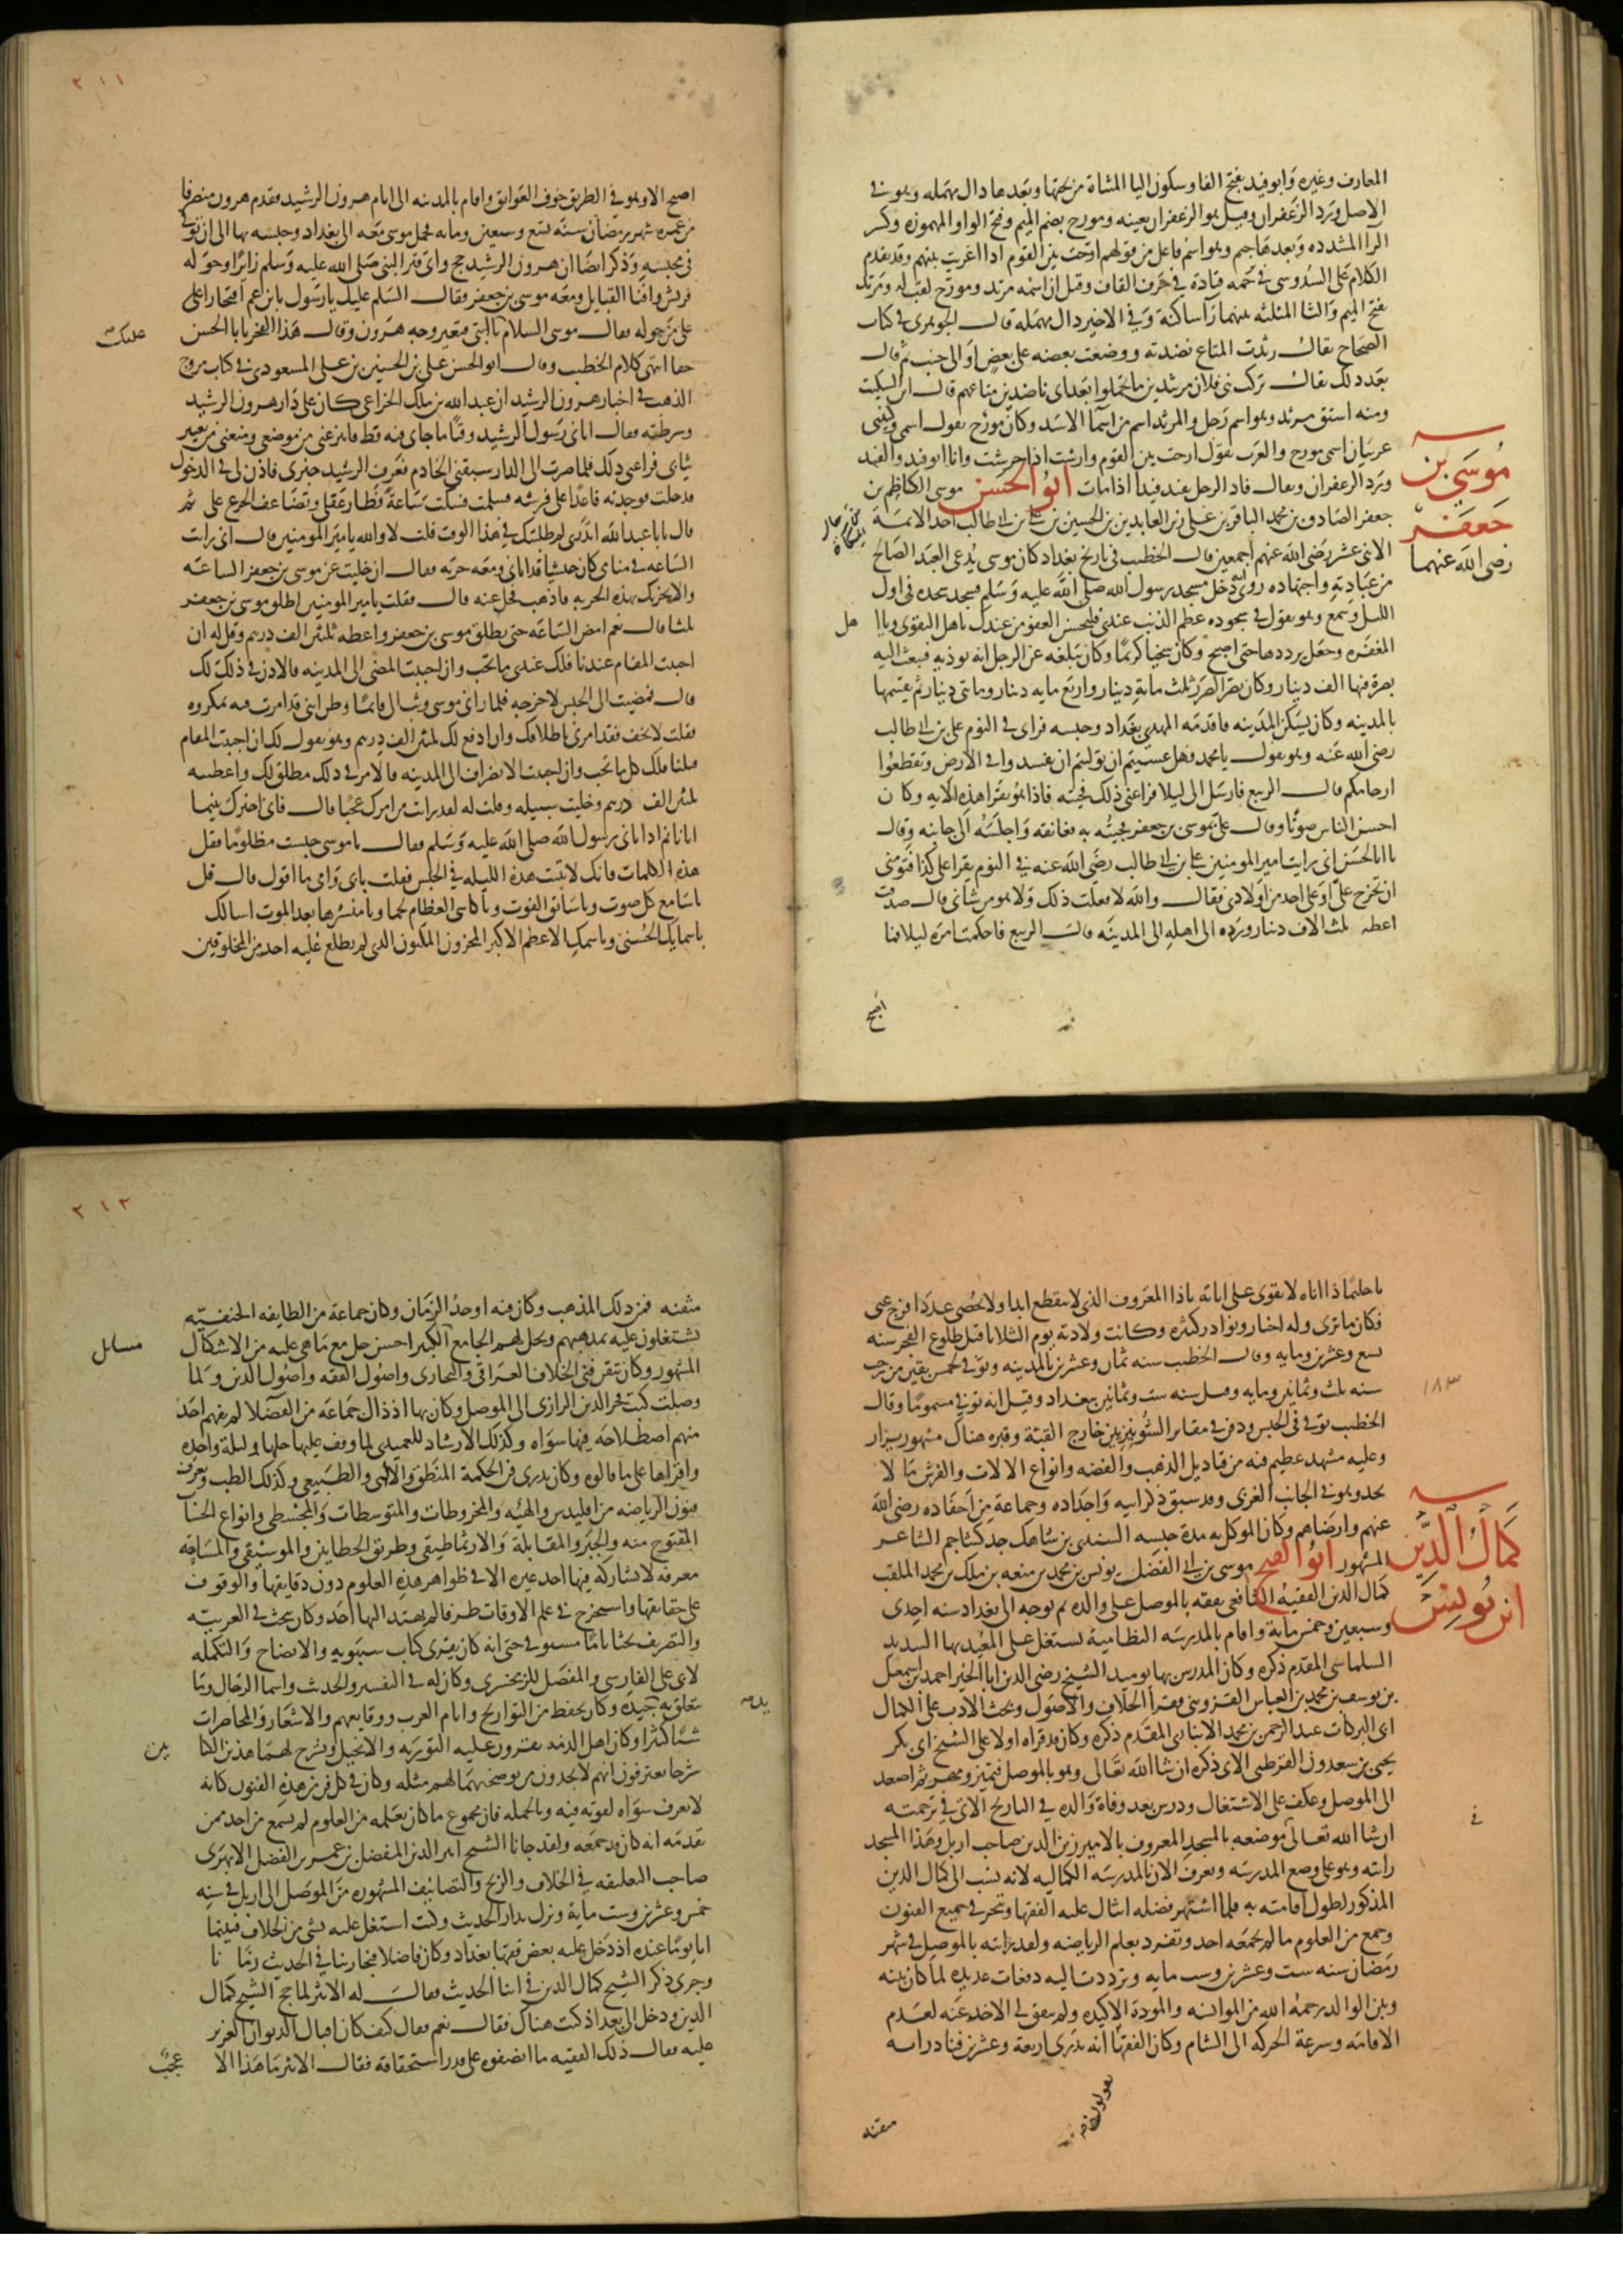 المعارف وغيره وابو فيد بفتح الفا وسكون اليا المثناة من تحتها وبعدها دال مهملة وهو في
الاصل ورد الزعفران وقيل هو الزعفران بعينه ومورج بضم الميم وفتح الواو المهموزه وكسر
الرا المشدده وبعدها جيم وهو اسم فاعل من قولهم ارجت بين القوم اذا اغريت بينهم وقد تقدم
الكلام على السدوسي في ترجمه قتادة في حرف القاف وقيل ان اسمه مرثد ومورج لقب له ومرثد
بفتح الميم والثا المثلثه بينهما را ساكنة وفي الاخير دال مهمله قال الجوهري في كتاب
الصحاح يقال رثدت المتاع نضدته ووضعت بعضه على بعض او الى جنب ثم قال
بعد ذلك يقال تركت بني فلان مرتثدين ما تحملوا بعد اي ناضدين متاعهم قال ابن السكيت
ومنه اشتق مرثد وهو اسم رجل والمرثد اسم من اسما الاسد وكان مورج يقول اسمي وكنيتي
عربيان اسمي مورج والعرب تقول ارجت بين القوم وارشت اذا حرشت وانا ابو فيد والفيد
ورد الزعفران ويقال فاد الرجل يفيد فيدا اذا مات ابو الحسن موسى الكاظم بن
موسى بن جعفر رضي الله عنهما
جعفر الصادق بن محمد الباقر بن علي زين العابدين بن الحسين بن علي بن ابي طالب احد الائمة
الاثني عشر رضي الله عنهم اجمعين قال الخطيب في تاريخ بغداد كان موسى يدعى العبد الصالح
من عبادته واجتهاده روي انه دخل مسجد رسول الله صلى الله عليه وسلم فسجد سجده في اول
الليل وسمع وهو يقول في سجوده عظم الذنب عندي فليحسن العفو من عندك يا اهل التقوى ويا ا
هل
المغفره وجعل يرددها حتى اصبح وكان سخيا كريما وكان يبلغه عن الرجل انه يوذيه فيبعث اليه
بصرة فيها الف دينار وكان يصر الصرر ثلث ماية دينار واربع مايه دينار ومايتي دينار ثم يقسمها
بالمدينه وكان يسكن المدينه فاقدمه المهدي بغداد وحبسه فراى في النوم علي بن ابي طالب
رضي الله عنه وهو يقول يا محمد فهل عسيتم ان توليتم ان تفسدوا في الارض وتقطعوا
ارحامكم قال الربيع فارسل الي ليلا فراعني ذلك فجئته فاذا هو يقرا هذه الايه وكان
احسن الناس صوتا وقال علي بموسى بن جعفر فجيته به فعانقه واجلسه الى جانبه وقال
يا ابا الحسن اني رايت امير المومنين علي بن ابي طالب رضي الله عنه في النوم يقرا علي كذا فتومني
ان تخرج علي او على احد من اولادي فقال والله لا فعلت ذلك ولا هو من شاني قال صدقت
اعطه ثلثة الاف دينار ورده الى اهله الى المدينه قال الربيع فاحكمت امره ليلا فما
اصبح
٢١١
اصبح الا وهو في الطريق خوف العوايق واقام بالمدينه الى ايام هرون الرشيد فقدم هرون منصرفا
من عمره شهر رمضان سنة تسع وسبعين ومايه فحمل موسى معه الى بغداد وحبسه بها الى ان توفي
في محبسه وذكر ايضا ان هرون الرشيد حج واتى قبر النبي صلى الله عليه وسلم زايرا وحوله
قريش وافنا القبايل ومعه موسى بن جعفر فقال السلم عليك يا رسول يا بن عم افتخارا على
على من حوله فقال موسى السلام يا ابتي فتغير وجه هرون وقال هذا الفخر يا ابا الحسن
عليك
حقا انتهى كلام الخطيب وقال ابو الحسن علي بن الحسين بن علي المسعودي في كتاب مروج
الذهب في اخبار هرون الرشيد ان عبد الله بن ملك الخزاعي كان على دار هرون الرشيد
وشرطته فقال اتاني رسول الرشيد وقتا ما جاني فيه قط فانتزعني من موضعي ومنعني من تغيير
ثيابي فراعني ذلك فلما صرت الى الدار سبقني الخادم فعرف الرشيد خبري فاذن لي في الدخول
فدخلت فوجدته قاعدا على فرشه فسلمت فسكت ساعة فطار عقلي وتضاعف الجزع علي ثم
قال يا با عبد الله اتدري لم طلبتك في هذا الوقت قلت لا والله يا امير المومنين قال اني رايت
الساعه في منامي كان حبشيا قد اتاني ومعه حربه فقال ان خليت عن موسى بن جعفر الساعة
والا نحرتك بهذه الحربه فاذهب فخل عنه قال فقلت يا امير المومنين اطلق موسى بن جعفر
ثلثا قال نعم امض الساعه حتى يطلق موسى بن جعفر واعطه ثلثين الف درهم وقل له ان
احببت المقام عندنا فلك عندي ما تحب وان احببت المضي الى المدينه فالاذن في ذلك لك
قال فمضيت الى الحبس لاخرجه فلما راني موسى وثب الي قايما وظن اني قد امرت فيه بمكروه
فقلت لا تخف فقد امرني باطلاقك وان ادفع لك ثلثين الف درهم وهو يقول لك ان احببت المقام
قبلنا فلك كل ما تحب وان احببت الانصراف الى المدينه فالامر في ذلك مطلق لك واعطيته
ثلثين الف درهم وخليت سبيله وقلت له لقد رايت من امرك عجبا قال فاني اخبرك بينما
انا نايم اذ اتاني رسول الله صلى الله عليه وسلم فقال يا موسى حبست مظلوما فقل
هذه الكلمات فانك لا تبيت هذه الليله في الحبس فقلت بابي وامي ما اقول قال قل
يا سامع كل صوت ويا سابق الفوت ويا كاسي العظام لحما ويا منشرها بعد الموت اسالك
باسمايك الحسنى وباسمك الاعظم الاكبر المخزون المكنون الذي لم يطلع عليه احد من المخلوقين
يا حليما ذا اناه لا يقوى على اناته يا ذا المعروف الذي لا ينقطع ابدا ولا يحصى عددا فرج عني
فكان ما ترى وله اخبار ونوادر كثره وكانت ولادته يوم الثلاثا قبل طلوع الفجر سنه
تسع وعشرين ومايه وقال الخطيب سنه ثمان وعشرين بالمدينه وتوفي لخمس بقين من رجب
سنه ثلث وثمانين ومايه وقيل سنه ست وثمانين ببغداد وقيل انه توفي مسموما وقال
١٨٣
الخطيب توفي في الحبس ودفن في مقابر الشونيزيين خارج القبة وقبره هناك مشهور يزار
وعليه مشهد عظيم فيه من قناديل الذهب والفضه وانواع الالات والفرش ما لا
يحد وهو في الجانب الغربي وقد سبق ذكر ابيه واجداده وجماعة من احفاده رضي الله
عنهم وارضاهم وكان الموكل به مدة حبسه السندي بن شاهك جد كشاجم الشاعر
المشهور ابو الفتح موسى بن ابي الفضل يونس بن محمد بن منعه بن ملك بن محمد الملقب
كمال الدين ابن يونس
كمال الدين الفقيه الشافعي تفقه بالموصل على والده ثم توجه الى بغداد سنه احدى
وسبعين وخمس ماية واقام بالمدرسه النظامية يشتغل على المعيد بها السديد
السلماسي المقدم ذكره وكان المدرس بها يوميذ الشيخ رضي الدين ابا الخير احمد بن اسمعيل
بن يوسف بن محمد بن العباس القزويني فقرا الخلاف والاصول وبحث الادب على الكمال
ابي البركات عبد الرحمن بن محمد الانباري المقدم ذكره وكان قد قراه اولا على الشيخ ابي بكر
يحيى بن سعدون القرطبي الاتي ذكره ان شا الله تعالى وهو بالموصل فتميز ومهر ثم اصعد
الى الموصل وعكف على الاشتغال ودرس بعد وفاة والده في التاريخ الاتي في ترجمته
في
ان شا الله تعالى موضعه بالمسجد المعروف بالامير زين الدين صاحب اربل وهذا المسجد
رايته وهو على وضع المدرسه ويعرف الان بالمدرسه الكماليه لانه نسب الى كمال الدين
المذكور لطول اقامته به فلما اشتهر فضله انثال عليه الفقها وتبحر في جميع الفنون
وجمع من العلوم ما لم يجمعه احد وتفرد بعلم الرياضه ولقد رايته بالموصل في شهر
رمضان سنه ست وعشرين وست مايه وترددت اليه دفعات عديده لما كان بينه
وبين الوالد رحمه الله من الموانسه والمودة الاكيده ولم يتفق لي الاخذ عنه لعدم
الاقامه وسرعة الحركه الى الشام وكان الفقها يقولون انه يدري اربعة وعشرين فنا دراسه
متقنه
٢١٢
متقنه فمن ذلك المذهب وكان فيه اوحد الزمان وكان جماعة من الطايفه الحنفيه
يشتغلون عليه بمذهبهم ويحل لهم الجامع الكبير احسن حل مع ما هي عليه من الاشكال
مسايل
المشهور وكان يتقن فني الخلاف العراقي والبخاري واصول الفقه واصول الدين ولما
وصلت كتب فخر الدين الرازي الى الموصل وكان بها اذ ذاك جماعة من الفضلا لم يفهم احد
منهم اصطلاحه فيها سواه وكذلك الارشاد للعميدي لما وقف عليها حلها في ليلة واحده
واقراها على ما قالوه وكان يدري فن الحكمة المنطق والالهي والطبيعي وكذلك الطب ويعرف
فنون الرياضه من اقليدس والهيئه والمخروطات والمتوسطات والمجسطي وانواع الحساب
المفتوح منه والجبر والمقابلة والارثماطيقي وطريق الخطاين والموسيقي والمساحة
معرفه لا يشاركه فيها احد غيره الا في ظواهر هذه العلوم دون دقايقها والوقوف
على حقايقها واستخرج في علم الاوقات طرقا لم يهتد اليها احد وكان يبحث في العربيه
والتصريف بحثا تاما مستوفى حتى انه كان يقرى كتاب سيبويه والايضاح والتكمله
لابي علي الفارسي والمفصل للزمخشري وكان له في التفسير والحديث واسما الرجال وما
يتعلق به يد جيده وكان يحفظ من التواريخ وايام العرب ووقايعهم والاشعار والمحاضرات
شيا كثيرا وكان اهل الذمه يقرون عليه التوريه والانجيل ويشرح لهما هذين الكتا
بين
شرحا يعترفون انهم لا يجدون من يوضحهما لهم مثله وكان في كل فن من هذه الفنون كانه
لا يعرف سواه لقوته فيه وبالجمله فان مجموع ما كان يعلمه من العلوم لم يسمع من احد ممن
تقدمه انه كان قد جمعه ولقد جانا الشيخ اثير الدين المفضل بن عمر بن الفضل الابهري
صاحب التعليقه في الخلاف والزيج والتصانيف المشهوره من الموصل الى اربل في سنه
خمس وعشرين وست ماية ونزل بدار الحديث وكنت اشتغل عليه بشي من الخلاف فبينما
انا يوما عنده اذ دخل عليه بعض فقها بغداد وكان فاضلا فتجارينا في الحديث زمانا
وجرى ذكر الشيخ كمال الدين في اثنا الحديث فقال له الاثير لما حج الشيخ كمال
الدين ودخل الى بغداد كنت هناك فقال نعم فقال كيف كان اقبال الديوان العزيز
عليه فقال ذلك الفقيه ما انصفوه على قدر استحقاقه فقال الاثير ما هذا الا
عجب